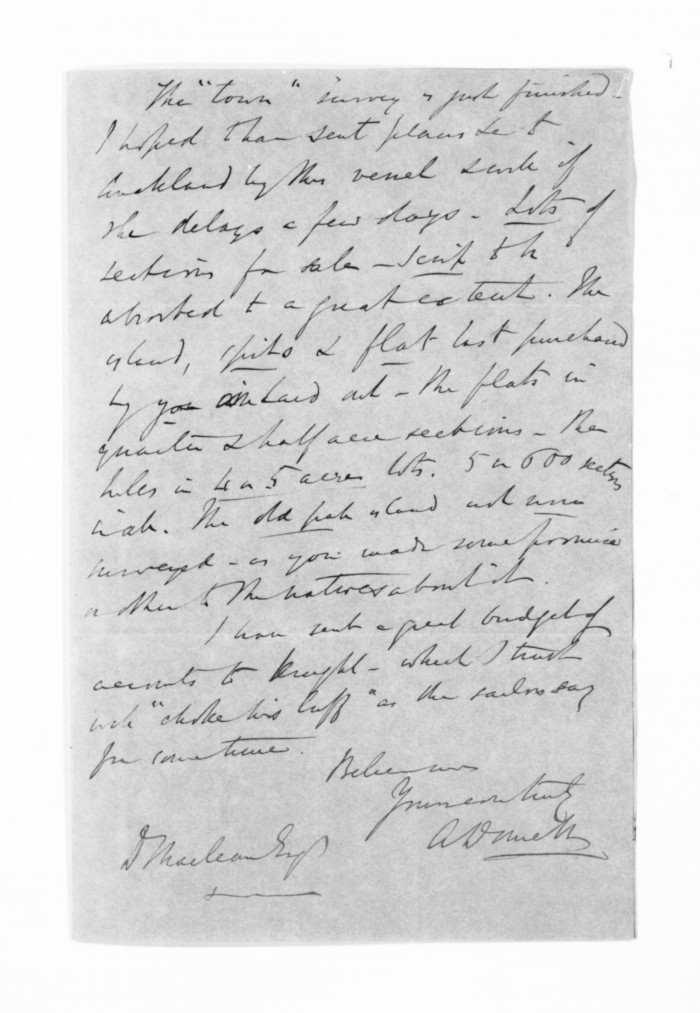 The "town" survey is just finished -
I hoped to have sent plans &c to
Auckland by this vessel & will if
she delays a few days - Lots of
sections for sale - Scrip to be
absorbed to a great extent. The
island, spits & flat last purchased
by you laid out - the flats in
quarter & half acre sections - the
hills in 4 or 5 acres lots. 5 or 600 sections
in all. The old pah island not
surveyed - as you made some promise
or other to the natives about it.
I have sent a great budget of
accounts to Knight - which I trust
will "choke his luff" as the sailors say
for some time.
Believe me
Yours very truly
A Domett
D Maclean Esq